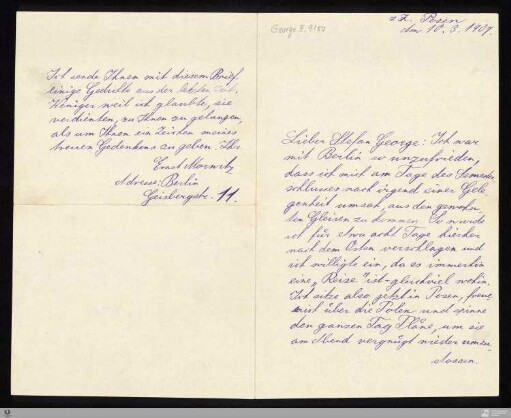 George III, 9157
z. Zt. Posen
den 10. 3. 1907.
Lieber Stefan George: Ich war
mit Berlin so unzufrieden,
dass ich mich am Tage des Semester
schlusses nach irgend einer Gele
genheit umsah, aus den gewohn
ten Gleisen zu kommen. So wurde
ich für etwa acht Tage hierher
nach dem Osten verschlagen und
ich willigte ein, da es immerhin
eine „Reise" ist - gleichviel wohin.
Ich sitze also jetzt in Posen, freue
mich über die Polen und spinne
den ganzen Tag Pläne, um sie
am Abend vergnügt wieder umzu
stossen.
Ich sende Ihnen mit diesem Brief
einige Gedichte aus der letzten Zeit,
Weniger weil ich glaubte, sie
verdienten, zu Ihnen zu gelangen,
als um Ihnen ein Zeichen meines
treuen Gedenkens zu geben. Ihr
Ernst Morwitz
Adresse: Berlin
Geisbergstr. 11.